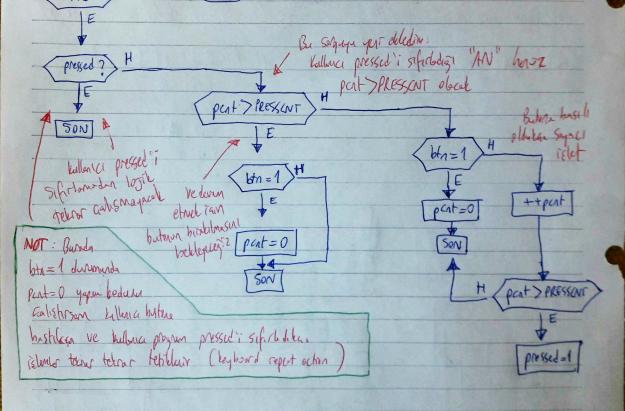 E
pressed?
H
E
SON
Bu sorguyu yeni ekledim.
kullanıcı pressed'i sıfırladığı "AN" henüz
pcnt>PRESSCNT olacak
pcnt>PRESSCNT
H
E
kullanıcı pressed'i
sıfırlamadan lojik
tekrar çalışmayacak
ve devam
etmek için
butonun bırakılmasını
bekleyeceğiz
btn=1
H
E
pcnt=0
SON
btn=1
H
E
pcnt=0
SON
Butona basılı
oldukça sayacı
işlet
++pcnt
pcnt>PRESSCNT
H
E
pressed=1
NOT: Burada
btn=1 durumunda
pcnt=0 yapan kodunu
çalıştırsam kullanıcı butona
bastıkça ve kullanıcı program pressed'i sıfırladıkça
işlemler tekrar tekrar tetiklenir (keyboard repeat action)